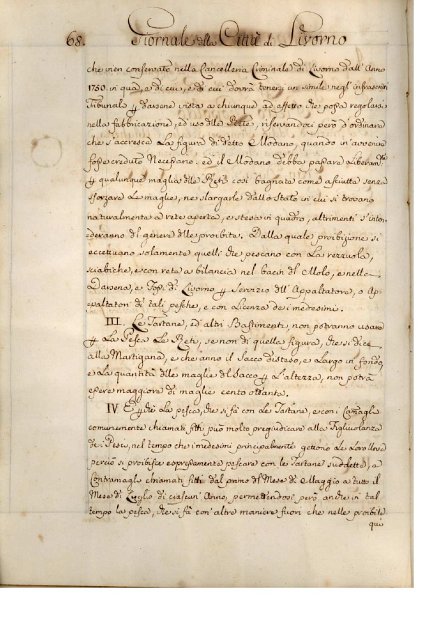 68. Giornale della Città di Livorno
che vien conservato nella Cancelleria Criminale di Livorno dall' Anno
1750 in qua, e di cui, e di cui dovrà tenersi un simile negl' infrascritti
Tribunali e darsene vista a chiunque ad effetto che possa regolarsi
nella fabbricazione, ed uso delle Reti, riservandoci però d'ordinare
che s'accresca La figura di detto Modano, quando in avvenire
fosse creduto Necessario. ed il Modano debba passare liberam.te
p qualunque maglia delle Reti così bagnata come asciutta senza
sforzare Le maglie, ne slargarle dallo Stato in cui si trovano
naturalmente a rete aperta, e stesa in quadro, altrimenti s'inten
deranno del genere delle proibite. Dalla quale proibizione si
eccettuano solamente quelli che pescano con La rezzuola,
sciabiche, e con rete a bilancia nel bacin del Molo, e nella
Darsena, e di Livorno p Servizio dell' Appaltatore, o Ap
paltatori di tali pesche, e con Licenza dei medesimi.
III. Le Tartane, ed altri Bastimenti, non potranno usare
p La Pesca Le Reti, se non di quella figura, che si dice
alla Martigana, e che anno il Sacco disteso, e Largo in fondo,
e La quantità delle maglie del Sacco p L'altezza, non potrà
essere maggiore di maglie cento ottanta.
IV E p che La pesca, che si fà con Le Tartane, e con i
comunemente chiamati fitti può molto pregiudicare alla Figliuolanza
dei Pesci, nel tempo che i medesimi principalmente gettono Le Loro Uova
perciò si proibisce espressamente pescare con Le Tartane suddette, a
Contramagli chiamati fitti dal primo del Mese di Maggio a tutto il
Mese di Luglio di ciascun' Anno, permettendosi però anche in tal
tempo la pesca, che si fà con altre maniere fuori che nelle proibite
qui